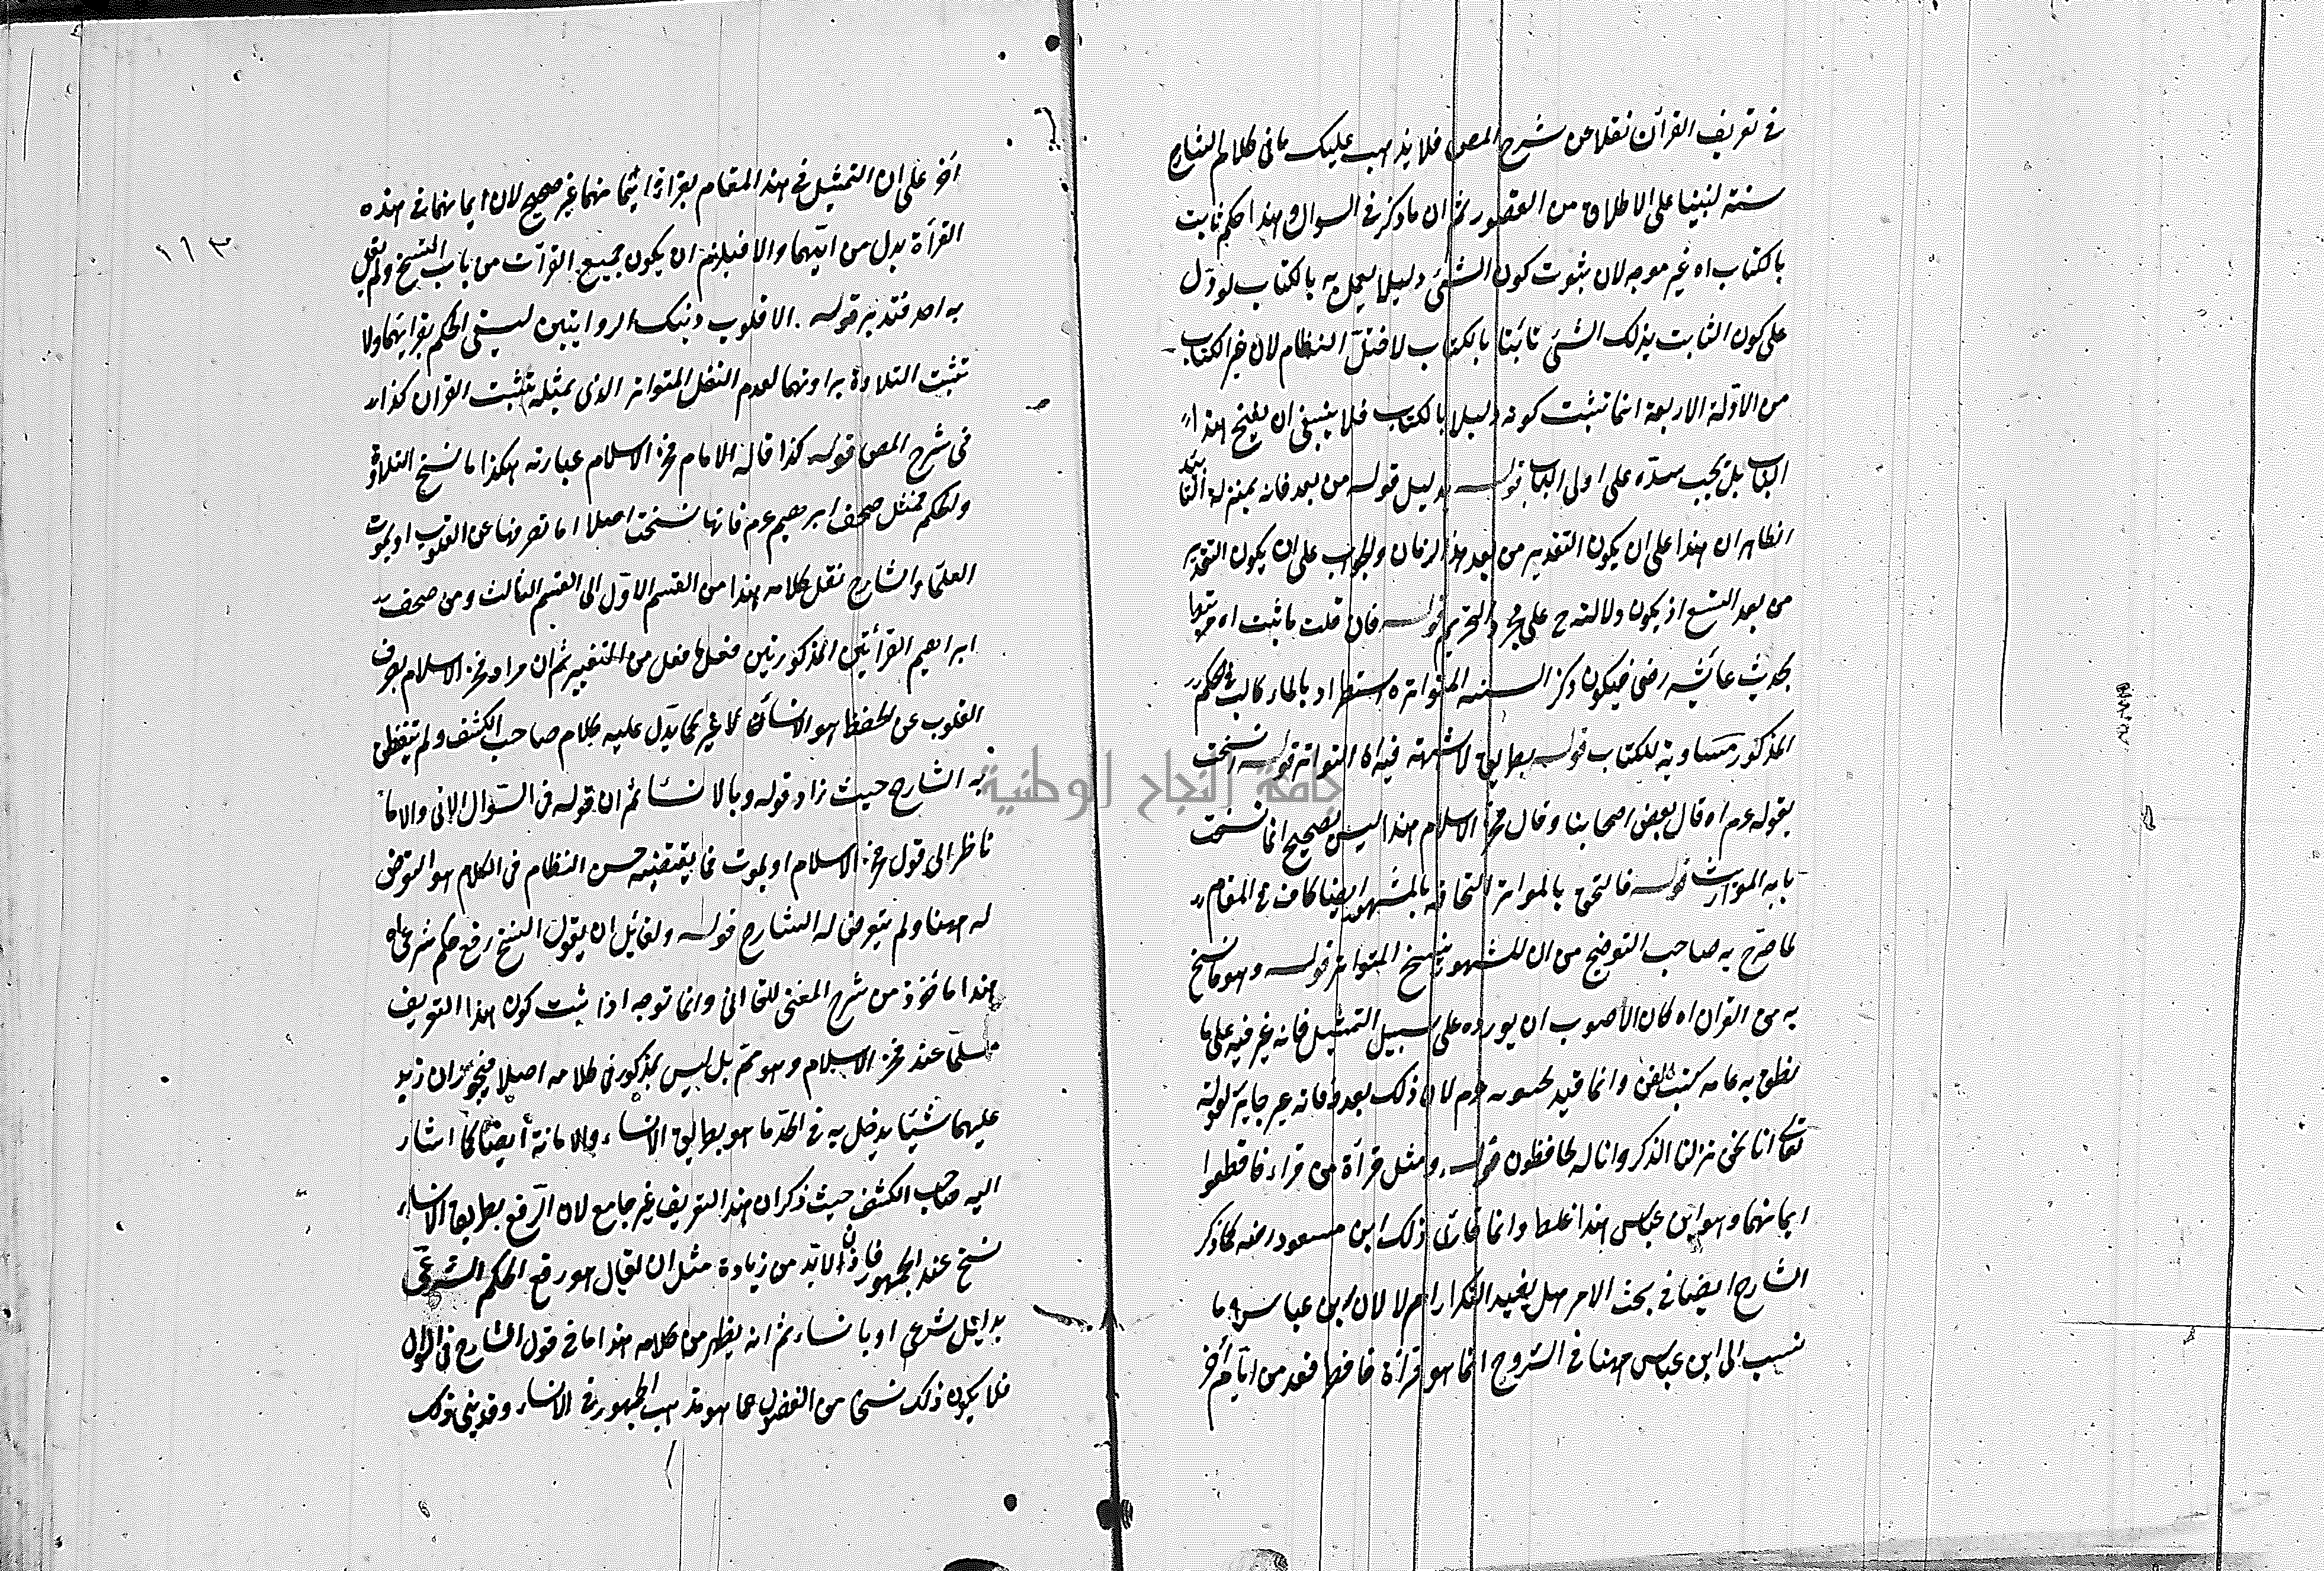 في تعريف القرآن نقلا عن شرح المص فلا يذهب عليك ما في كلام الشارح
سنة لنبينا على الاطلاق من القصور ثم ان ما ذكر في السوال وهذا حكم ثابت
بالكتاب اه غير موجه لان ثبوت كون الشئ دليلا يعمل به بالكتاب لو دل
على كون الثابت بذلك الشئ ثابتا بالكتاب لاختل النظام لان غير الكتاب
من الادلة الاربعة انما تثبت كونه دليلا بالكتاب فلا ينبغي ان يفتح هذا
الباب بل يجب سده على اولى الباب قوله بدليل قوله من بعد فانه بمنزلة التأبيد
الظاهر ان هذا على ان يكون التقدير من بعد هذا الزمان والجواب على ان يكون التقدير
من بعد التسع اذ يكون دلالته ح على مجرد التحريم قوله فان قلت ما ثبت اه
بحديث عائشه رضي فيكون ذكر السنه المتواتره استطرادا بالماء كالبث الحكم
المذكور مساوية للكتاب قوله بطريق لا شبهته فيه اه التواتر قوله نسخت
بقوله عم اه قال بعض اصحابنا وقال فخر الاسلام هذا ليس بصحيح انما نسخت
باية المواريث قوله فالتحق بالمواتر التحاقه بالمشهور ايضا كاف في المقام
لما صرح به صاحب التوضيح من ان المشهور ينسخ المتواتر قوله وهو ما نسخ
به من القران اه كان الاصوب ان يورده على سبيل التمثيل فانه غير فيه على ما
نطق به عامه كتب الفن وانما قيد بحسوبه عم لان ذلك بعد وفاته غير جايز لقوله
تعالى انا نحن نزلنا الذكر وانا له لحافظون قوله ومثل قرآة من قراء فاقطعوا
ايمانهما وهو ابن عباس هذا غلط وانما قارئ ذلك ابن مسعود رضه كما ذكر
الشارح ايضا في بحث الامر هل يفيد التكرار ام لا لان ابن عباس وما
نسب الى ابن عباس ههنا في الشروح انما هو قرآة فافطر فعد من ايام أخر
١١٣
آخر على ان التمثيل في هذا المقام بقراة ايمانهما غير صحيح لان ايمانهما في هذه
القرأة بدل من ايديهما والا فيلزم ان يكون جميع القرآت من باب النسخ ولم يقل
به احد فتدبر قوله الا قلوب ذينك الروايتين ليبقى الحكم بقرايتهما ولا
تثبت التلاوة بروايتهما لعدم النقل المتواتر الذي بمثله تثبت القران كذا
في شرح المص قوله كذا قاله الامام فخر الاسلام عبارته هكذا ما نسخ التلاوة
والحكم فمثل صحف ابرهيم عم فانها نسخت اصلا اما بصرفها عن القلوب او بموت
العلماء والشارح نقل كلامه هذا من القسم الاول الى القسم الثالث ومن صحف
ابراهيم القرأتين المذكورتين ففعل ما فعل من التغيير ثم ان مراد فخر الاسلام بصرف
القلوب عن الحفظ هو الانساء لا غير كما يدل عليه كلام صاحب الكشف ولم يتفطن
به الشارح حيث زاد قوله وبالانساء ثم ان قوله في السؤال الاتي والاماتة
ناظر الى قول فخر الاسلام او بموت فما يقتضيه حسن النظام في الكلام هو التعرض
له ههنا ولم يتعرض له الشارح قوله ولقائل ان يقول النسخ رفع حكم شرعي اه
هذا مأخوذ من شرح المغني للقاآني وانما توجه اذا ثبت كون هذا التعريف
مسلما عند فخر الاسلام وهو مم بل ليس بمذكور في كلامه اصلا فيجوز ان زيد
عليهما شيئا يدخل به في الحد ما هو بطريق الانساء والاماتة أيضا كما اشار
اليه صاحب الكشف حيث ذكر ان هذا التعريف غير جامع لان الرفع بطريق الانساء
نسخ عند الجمهور فاذن لا بد من زيادة مثل ان يقال هو رفع الحكم الشرعي
بدليل شرعي او بانساء ثم انه يظهر من كلامه هذا ما في قول الشارح في السؤال
فلا يكون ذلك نسخا من الفضول عما هو مذهب الجمهور في الانساء وقد يبنى ذلك
جامعة النجاح الوطنية